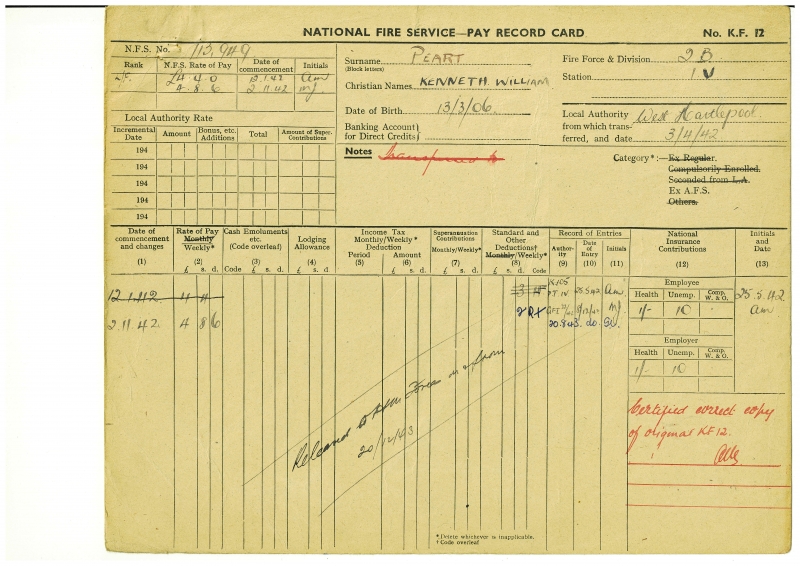 NATIONAL FIRE SERVICE—PAY RECORD CARD No. K.F. 12
N.F.S. No. 113,949
Rank N.F.S. Rate of Pay Date of commencement Initials
£4 4. 0 12.1.42 Am
4. 8. 6 2.11.42 MJ
Surname PEART
(Block letters)
Christian Names KENNETH WILLIAM
Date of Birth 13/3/06.
Banking Account
for Direct Credits
Fire Force & Division 2 B
Station 1 V
Local Authority West Hartlepool.
from which trans-
ferred, and date 3/4/42
Local Authority Rate
Incremental Date Amount Bonus, etc. Additions Total Amount of Super. Contributions
194
194
194
194
194
Notes transferred to
Category*:—Ex Regular.
Compulsorily Enrolled.
Seconded from L.A.
Ex A.F.S.
Others.
Date of commencement and changes (1)
Rate of Pay Monthly Weekly* (2) £ s. d.
Cash Emoluments etc. (Code overleaf) (3) Code £ s. d.
Lodging Allowance (4) £ s. d.
Income Tax Monthly/Weekly* Deduction Period (5) Amount (6) £ s. d.
Superannuation Contributions Monthly/Weekly* (7) £ s. d.
Standard and Other Deductions† Monthly/Weekly* (8) £ s. d. Code
Record of Entries Authority (9) Date of Entry (10) Initials (11)
National Insurance Contributions (12)
Initials and Date (13)
12.1.42 4 4 3 4 K105 PT IV 25.5.42 Am
2.11.42. 4 8 6 2 RX 8/12/42 MJ
20.8.43. do.
Employee
Health Unemp. Comp. W. & O.
1/- 10
25.5.42
Am
Employer
Health Unemp. Comp. W. & O.
1/- 10
Released to from
20/12/43
Certified correct copy
of original KF12.
*Delete whichever is inapplicable.
†Code overleaf